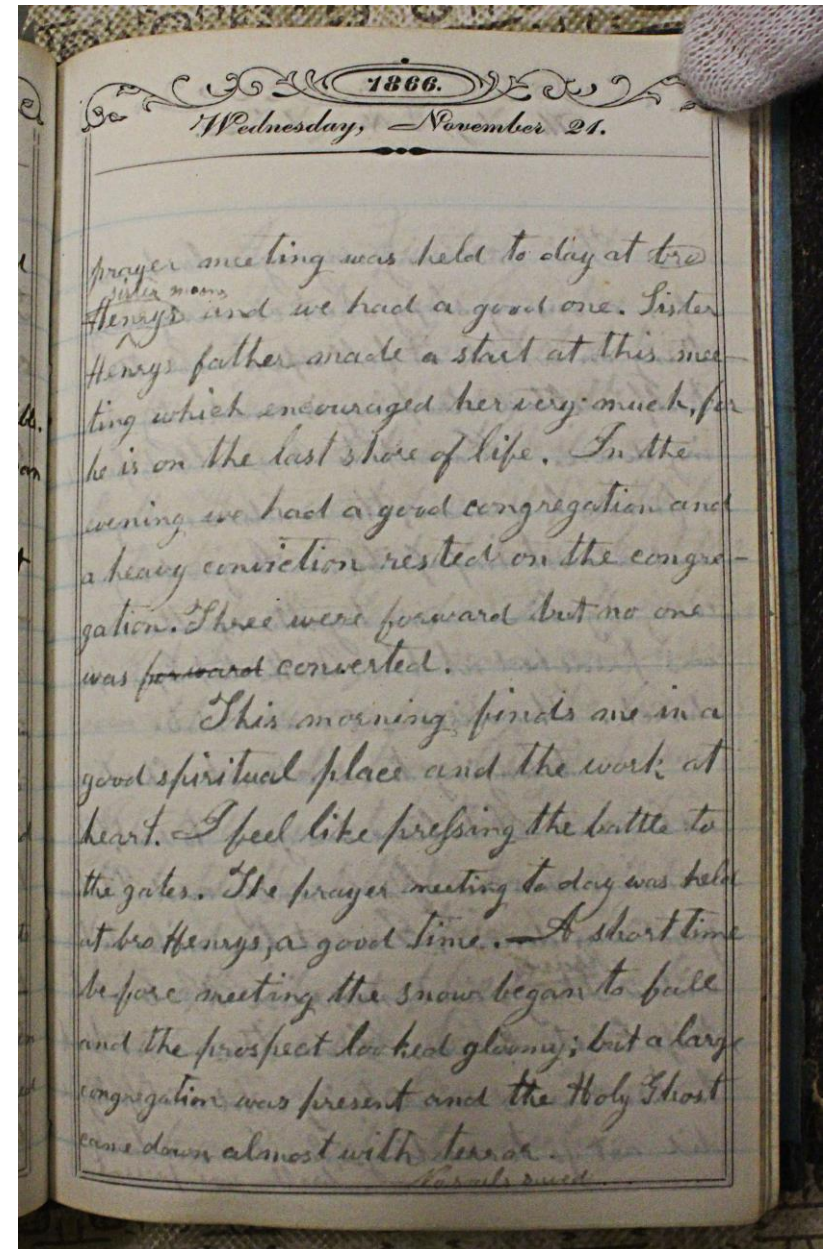 1866.
Wednesday, November 21.
prayer meeting was held to day at bro
sister moms
Henrys and we had a good one. Sister
Henrys father made a start at this mee-
ting which encouraged her very much, for
he is on the last shore of life. In the
evening we had a good congregation and
a heavy conviction rested on the congre-
gation. Three were forward but no one
was forward converted.
This morning finds me in a
good spiritual place and the work at
heart. I feel like pressing the battle to
the gates. The prayer meeting to day was held
at bro Henrys, a good time. — A short time
before meeting the snow began to fall
and the prospect looked gloomy; but a large
congregation was present and the Holy Ghost
came down almost with terror.
No souls saved.